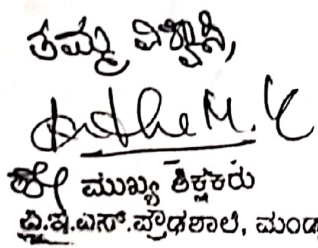 ತಮ್ಮ ವಿಶ್ವಾಸಿ,
ಮುಖ್ಯ ಶಿಕ್ಷಕರು
ಪಿ.ಇ.ಎಸ್.ಪ್ರೌಢಶಾಲೆ, ಮಂಡ